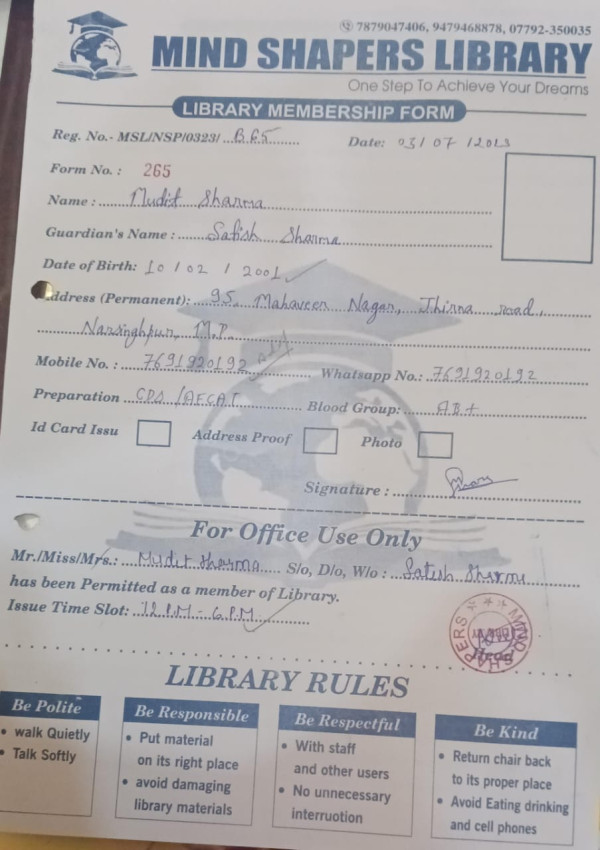 7879047406, 9479468878, 07792-350035
MIND SHAPERS LIBRARY
One Step To Achieve Your Dreams
LIBRARY MEMBERSHIP FORM
Reg. No.- MSL/NSP/0323/ B65
Date: 03/07/2023
Form No. : 265
Name : Mudit Sharma
Guardian's Name : Satish Sharma
Date of Birth: 10/02/2001
Address (Permanent): 95, Mahaveer Nagar, Jhirna road,
Narsinghpur, M.P.
Mobile No. : 7691920192 Whatsapp No.: 7691920192
Preparation CDS/AFCAT Blood Group: AB+
Id Card Issu Address Proof Photo
Signature :
For Office Use Only
Mr./Miss/Mrs.: Mudit Sharma S/o, D/o, W/o : Satish Sharma
has been Permitted as a member of Library.
Issue Time Slot: 12 P.M - 6 P.M
MIND SHAPERS
LIBRARY RULES
Be Polite
• walk Quietly
• Talk Softly
Be Responsible
• Put material
on its right place
• avoid damaging
library materials
Be Respectful
• With staff
and other users
• No unnecessary
interruotion
Be Kind
• Return chair back
to its proper place
• Avoid Eating drinking
and cell phones